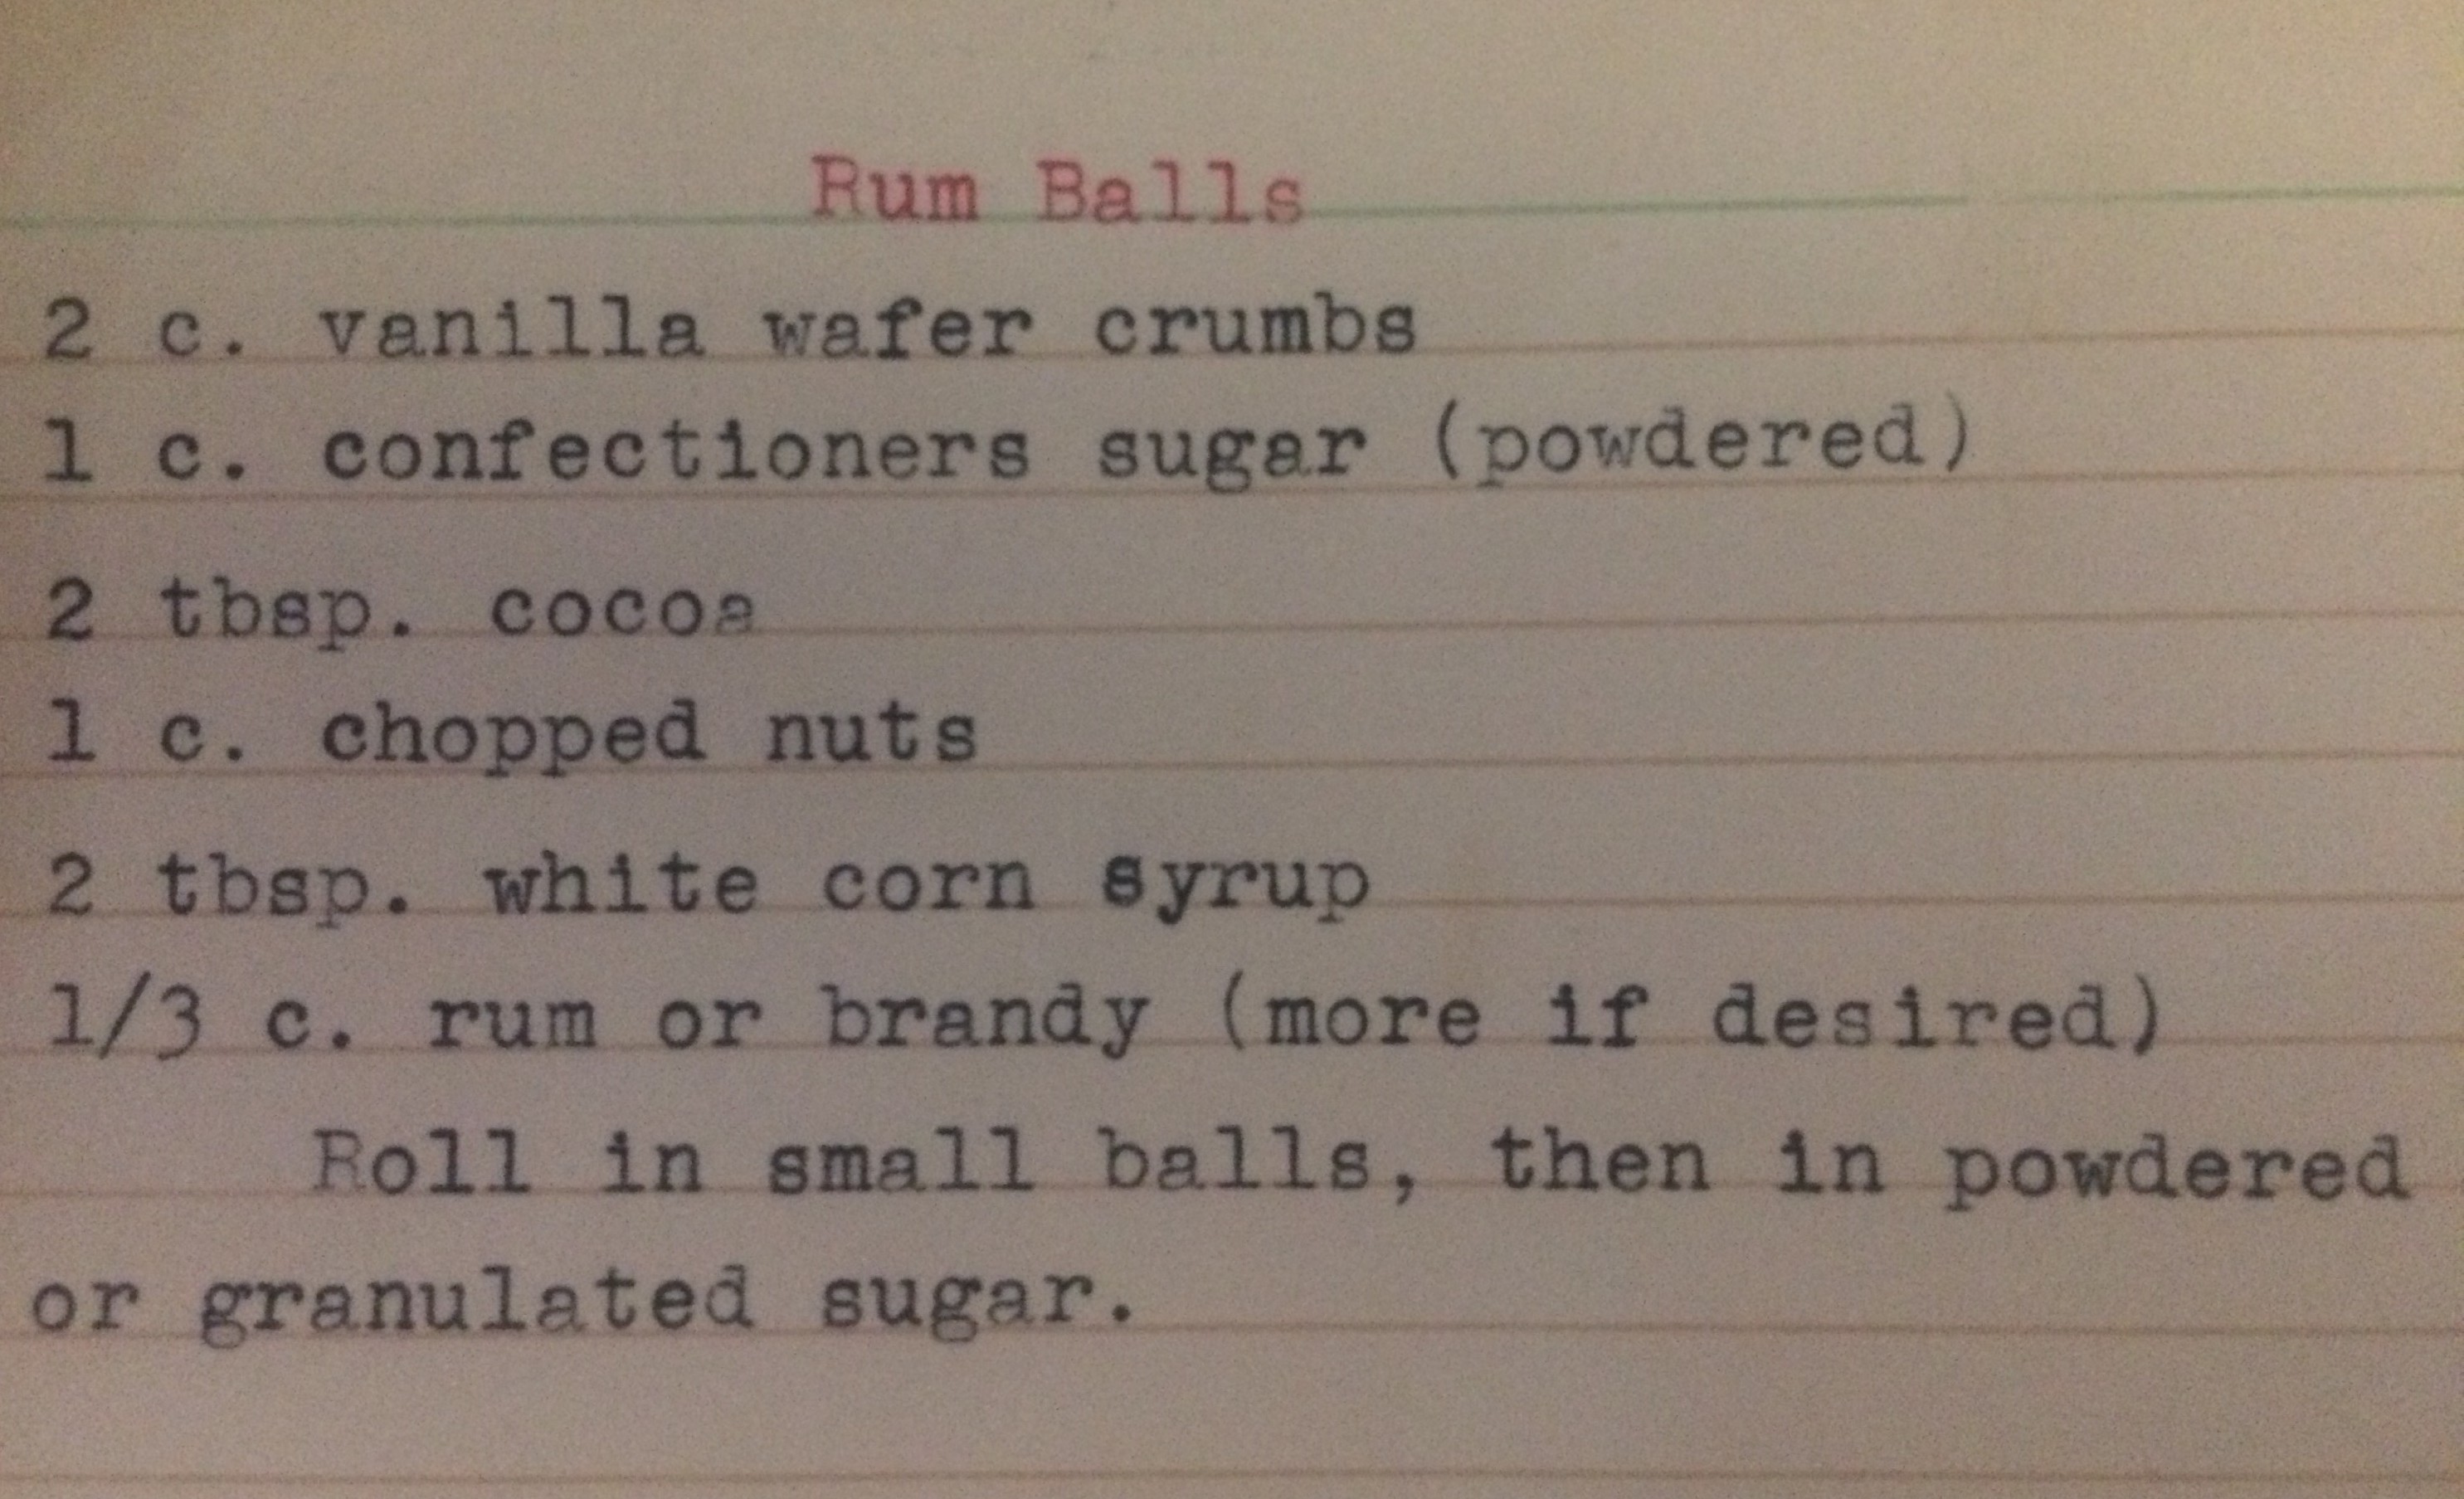 Rum Balls
2 c. vanilla wafer crumbs
1 c. confectioners sugar (powdered)
2 tbsp. cocoa
1 c. chopped nuts
2 tbsp. white corn syrup
1/3 c. rum or brandy (more if desired)
Roll in small balls, then in powdered
or granulated sugar.